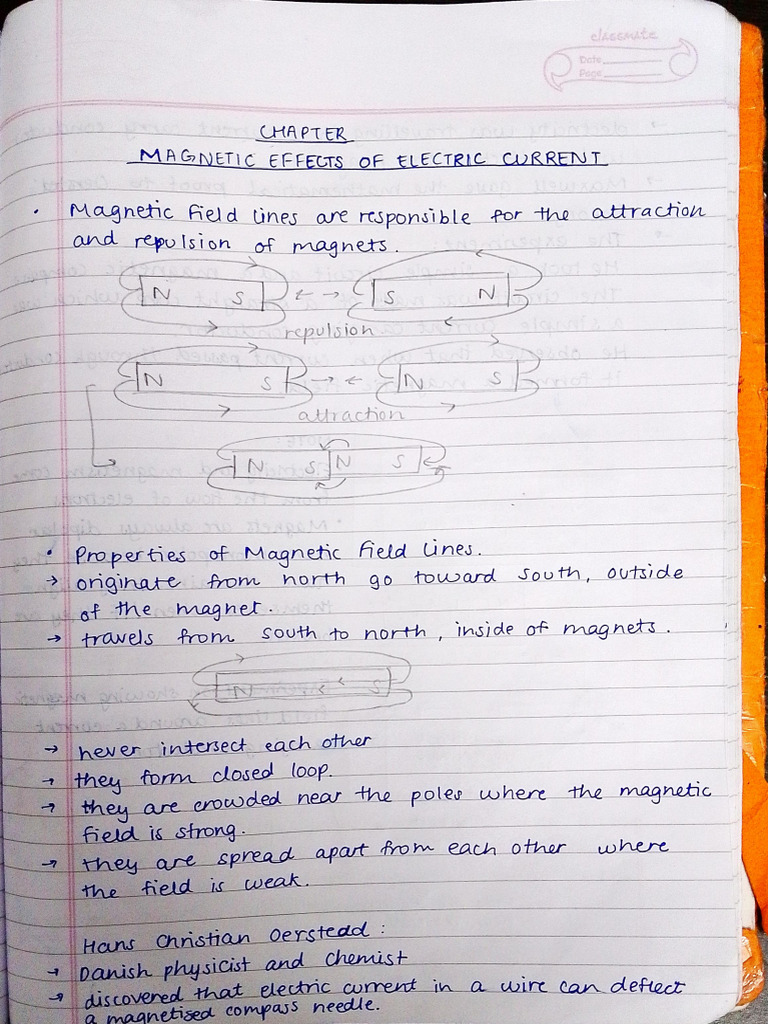 classmate
Date
Page
CHAPTER
MAGNETIC EFFECTS OF ELECTRIC CURRENT
• Magnetic field lines are responsible for the attraction
and repulsion of magnets.
N S ← → S N
repulsion
N S → ← N S
attraction
N S N S
• Properties of Magnetic Field Lines.
→ originate from north go toward south, outside
of the magnet.
→ travels from south to north, inside of magnets.
N S
→ never intersect each other
→ they form closed loop.
→ they are crowded near the poles where the magnetic
field is strong.
→ they are spread apart from each other where
the field is weak.
Hans Christian Oerstedd :
→ Danish physicist and chemist
→ discovered that electric current in a wire can deflect
a magnetised compass needle.